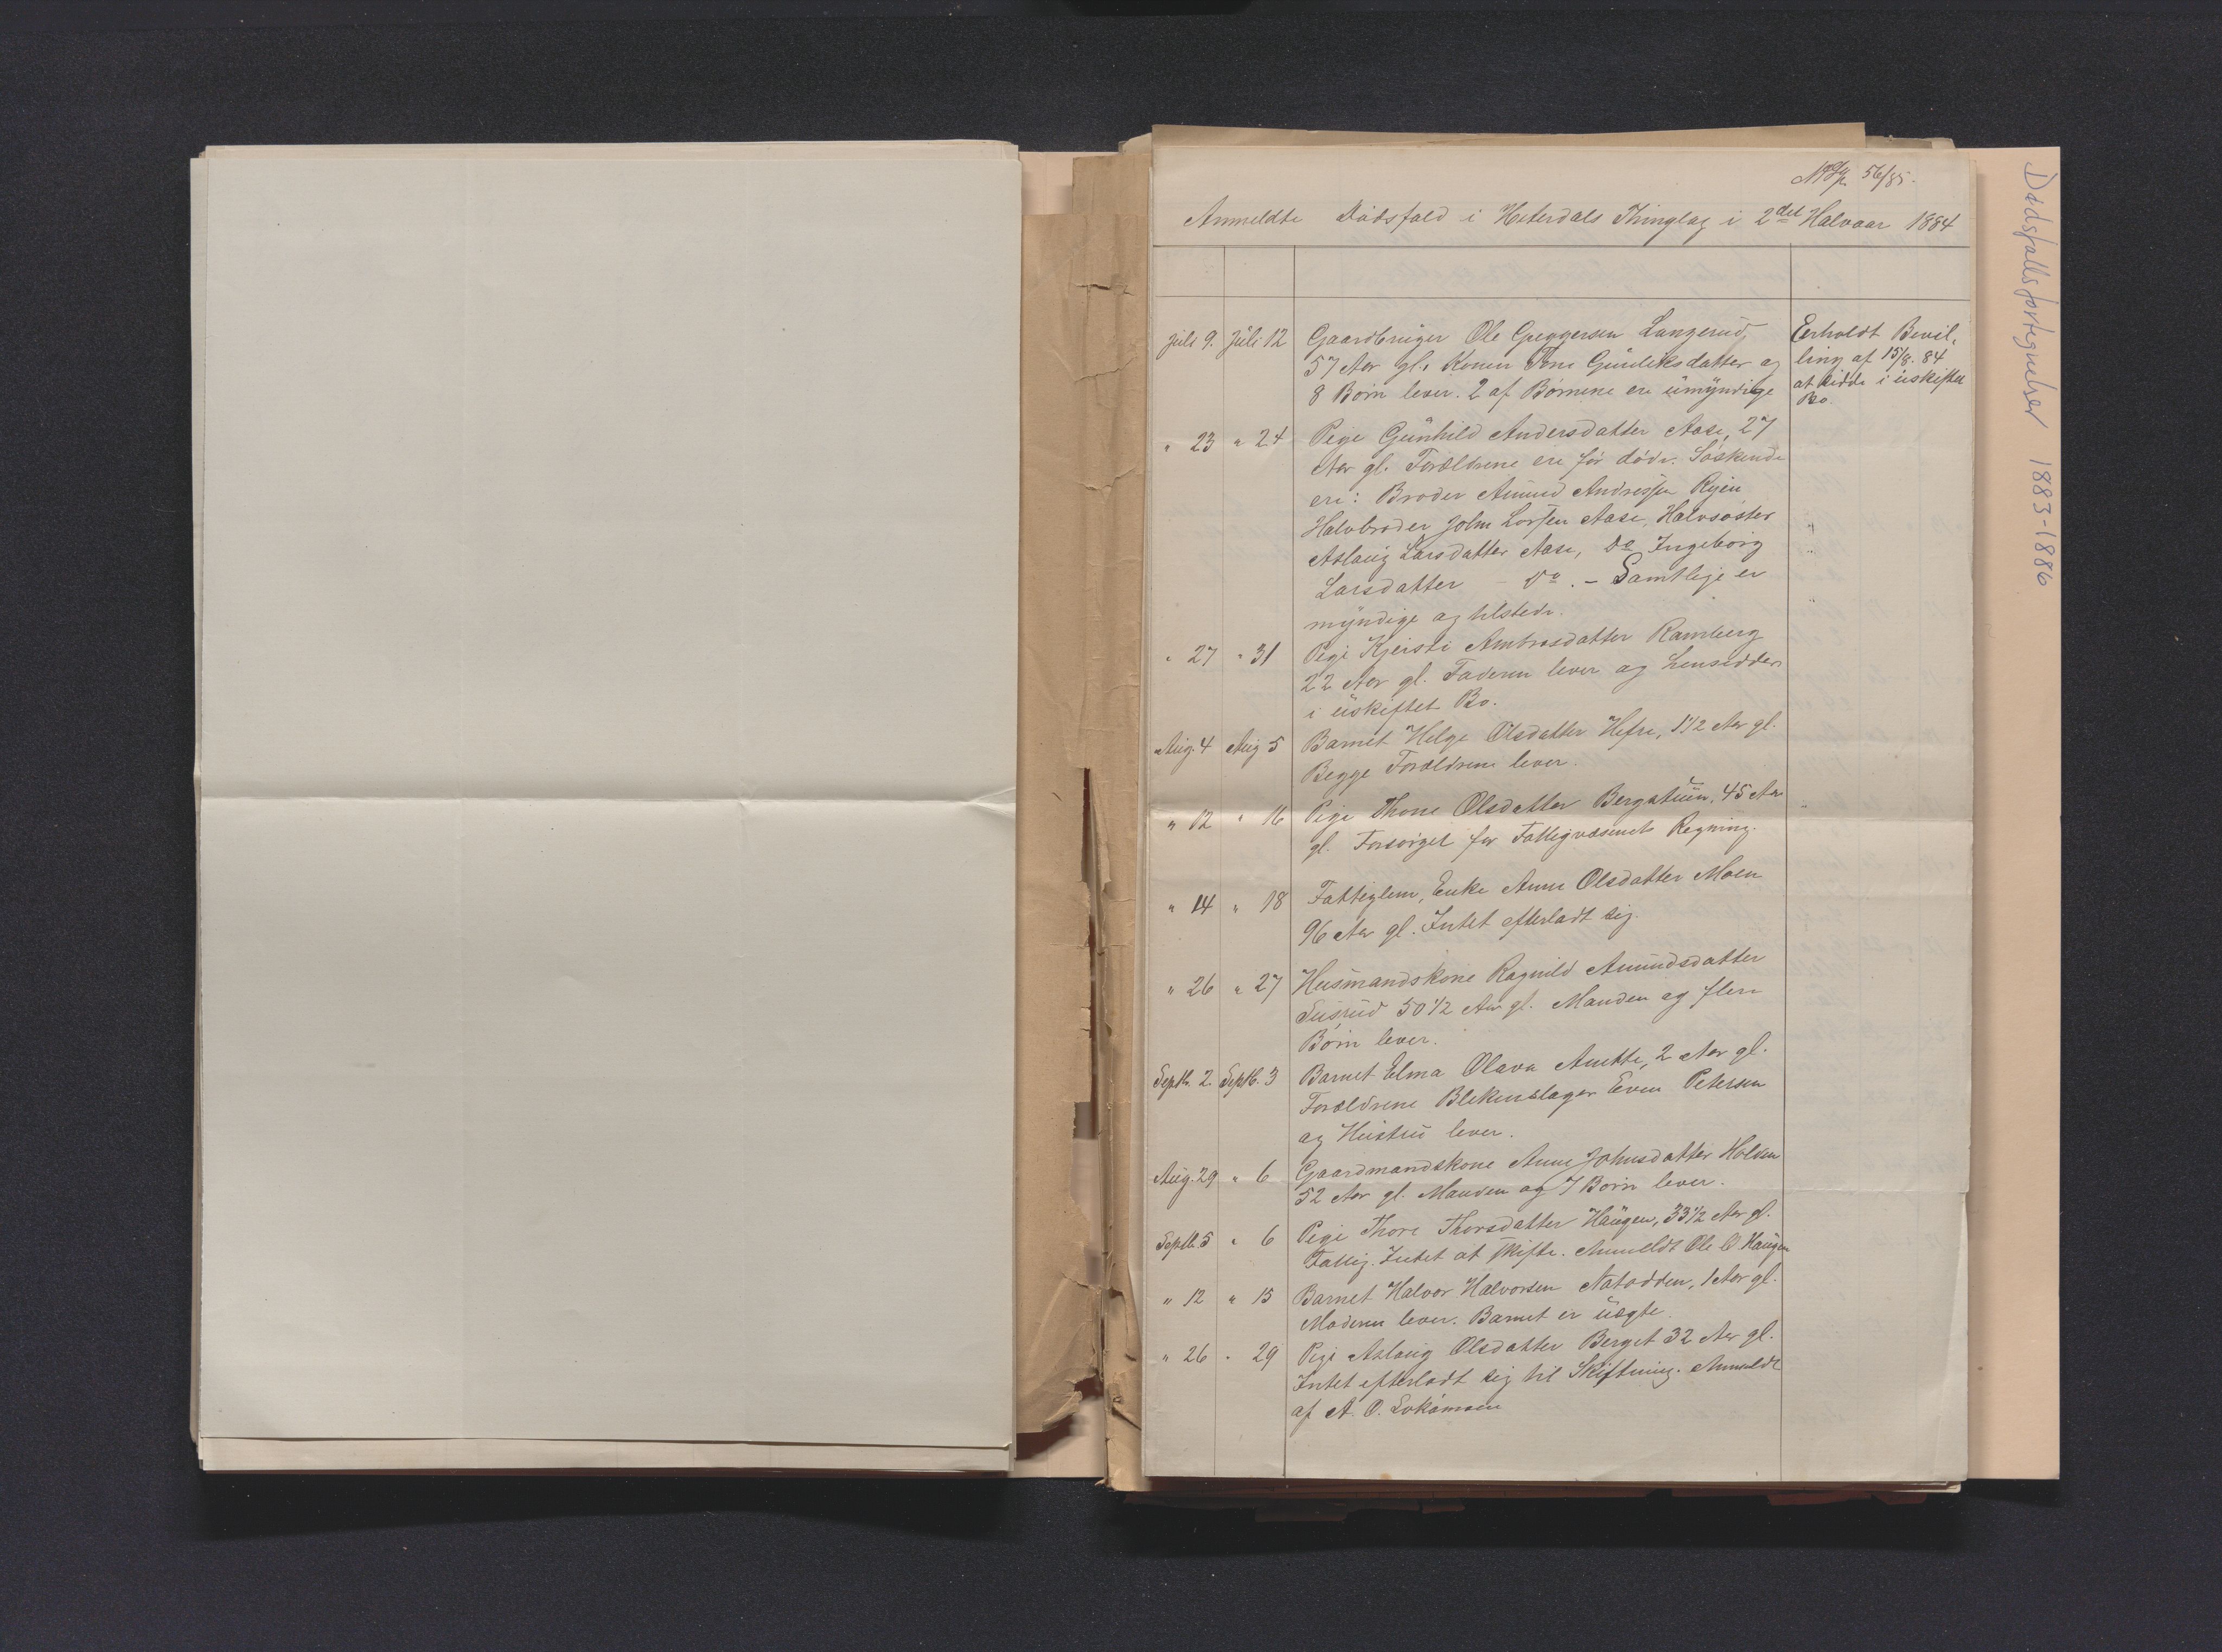 56/85.
Anmeldte Dödsfald i Hiterdals Thinglag i 2det Halvaar 1884
Juli 9. Juli 12 Gaardbruger Ole Greggersen Langerud, Erholdt Bevil-
57 Aar gl. Konen Tone Gunleiksdatter og ling af 15/8. 84
8 Börn lever. 2 af Börnene ere umyndige at sidde i uskiftet
Bo.
" 23 " 24 Pige Gunhild Andersdatter Aase, 27
Aar gl. Forældrene ere før döde. Söskende
ere: Broder Amund Andressen Ryen
Halvbroder John Larsen Aase, Halvsöster
Aslaug Larsdatter Aase, Do Ingeborg
Larsdatter - Do. - Samtlige er
myndige og tilstede.
" 27 " 31 Pige Kjersti Ambrosdatter Ramberg
22 Aar gl. Faderen lever og hensidder
i uskiftet Bo.
Aug. 4 Aug 5 Barnet Helge Olsdatter Hefre, 1 1/2 Aar gl.
Begge Forældrene lever.
" 12 " 16 Pige Thone Olsdatter Bergstuen, 45 Aar
gl. Forsörget for Fattigvæsenets Regning.
" 14 " 18 Fattiglem, Enke Anne Olsdatter Moen
96 Aar gl. Intet efterladt sig.
" 26 " 27 Husmandskone Ragnild Amundsdatter
50 1/2 Aar gl. Manden og flere
Börn lever.
Septb. 2. Septb. 3 Barnet Elma Olava Anette, 2 Aar gl.
Forældrene Blikenslager Even Petersen
og Hustru lever.
Aug. 29 " 6 Gaardmandskone Anne Johnsdatter Holden
52 Aar gl. Manden og 7 Börn lever.
Septb. 5 " 6 Pige Thore Thorsdatter Haugen, 33 1/2 Aar gl.
Fattig. Intet at skifte. Anmeldt Ole O Haugen
" 12 " 15 Barnet Halvor Halvorsen Natodden, 1 Aar gl.
Moderen lever. Barnet er uægte.
" 26 " 29 Pige Aslaug Olsdatter Berget 32 Aar gl.
Intet efterladt sig til Skiftning. Anmeldt
af A. O.
Dødsfallsfortegnelser 1883-1886